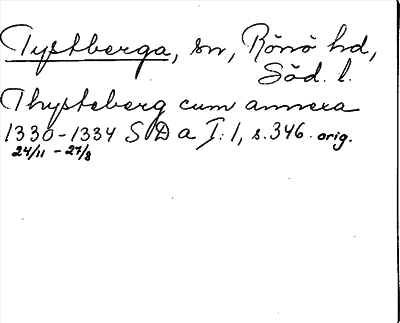 Tystberga, sn, Rönö hd,
Söd. l.
Thysteberg cum annexa
1330-1334 SDa I:1, s.346. orig.
24/11 - 27/8